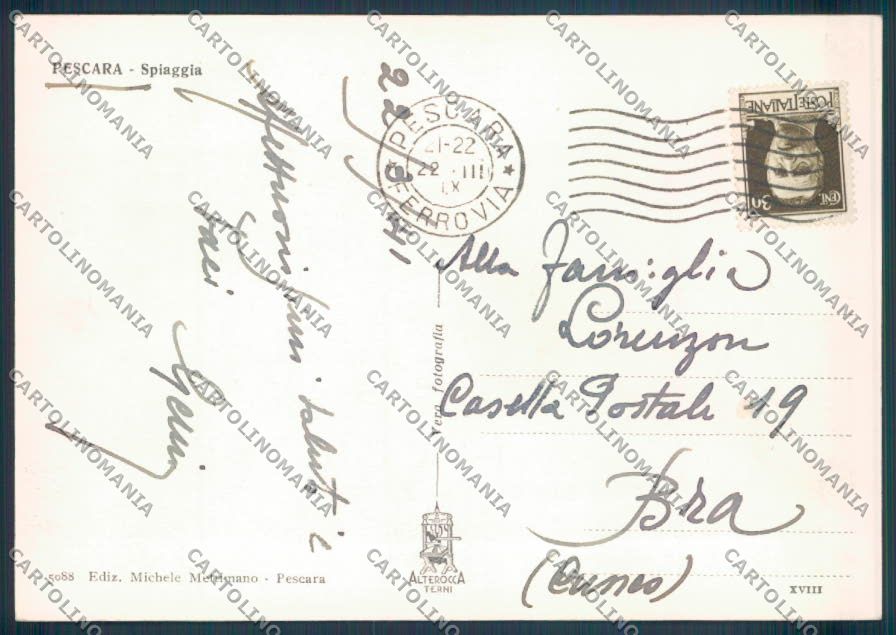 PESCARA - Spiaggia
22 3 41
Affettuosissimi saluti e
baci
PESCARA
21-22
22 III
IX
FERROVIA
POSTE ITALIANE
CENT. 30
Alla Famiglia
Lorenzon
Casella Postale 19
Bra
(Cuneo)
Vera fotografia
ALTEROCCA
TERNI
5088 Ediz. Michele - Pescara
XVIII
CARTOLINOMANIA